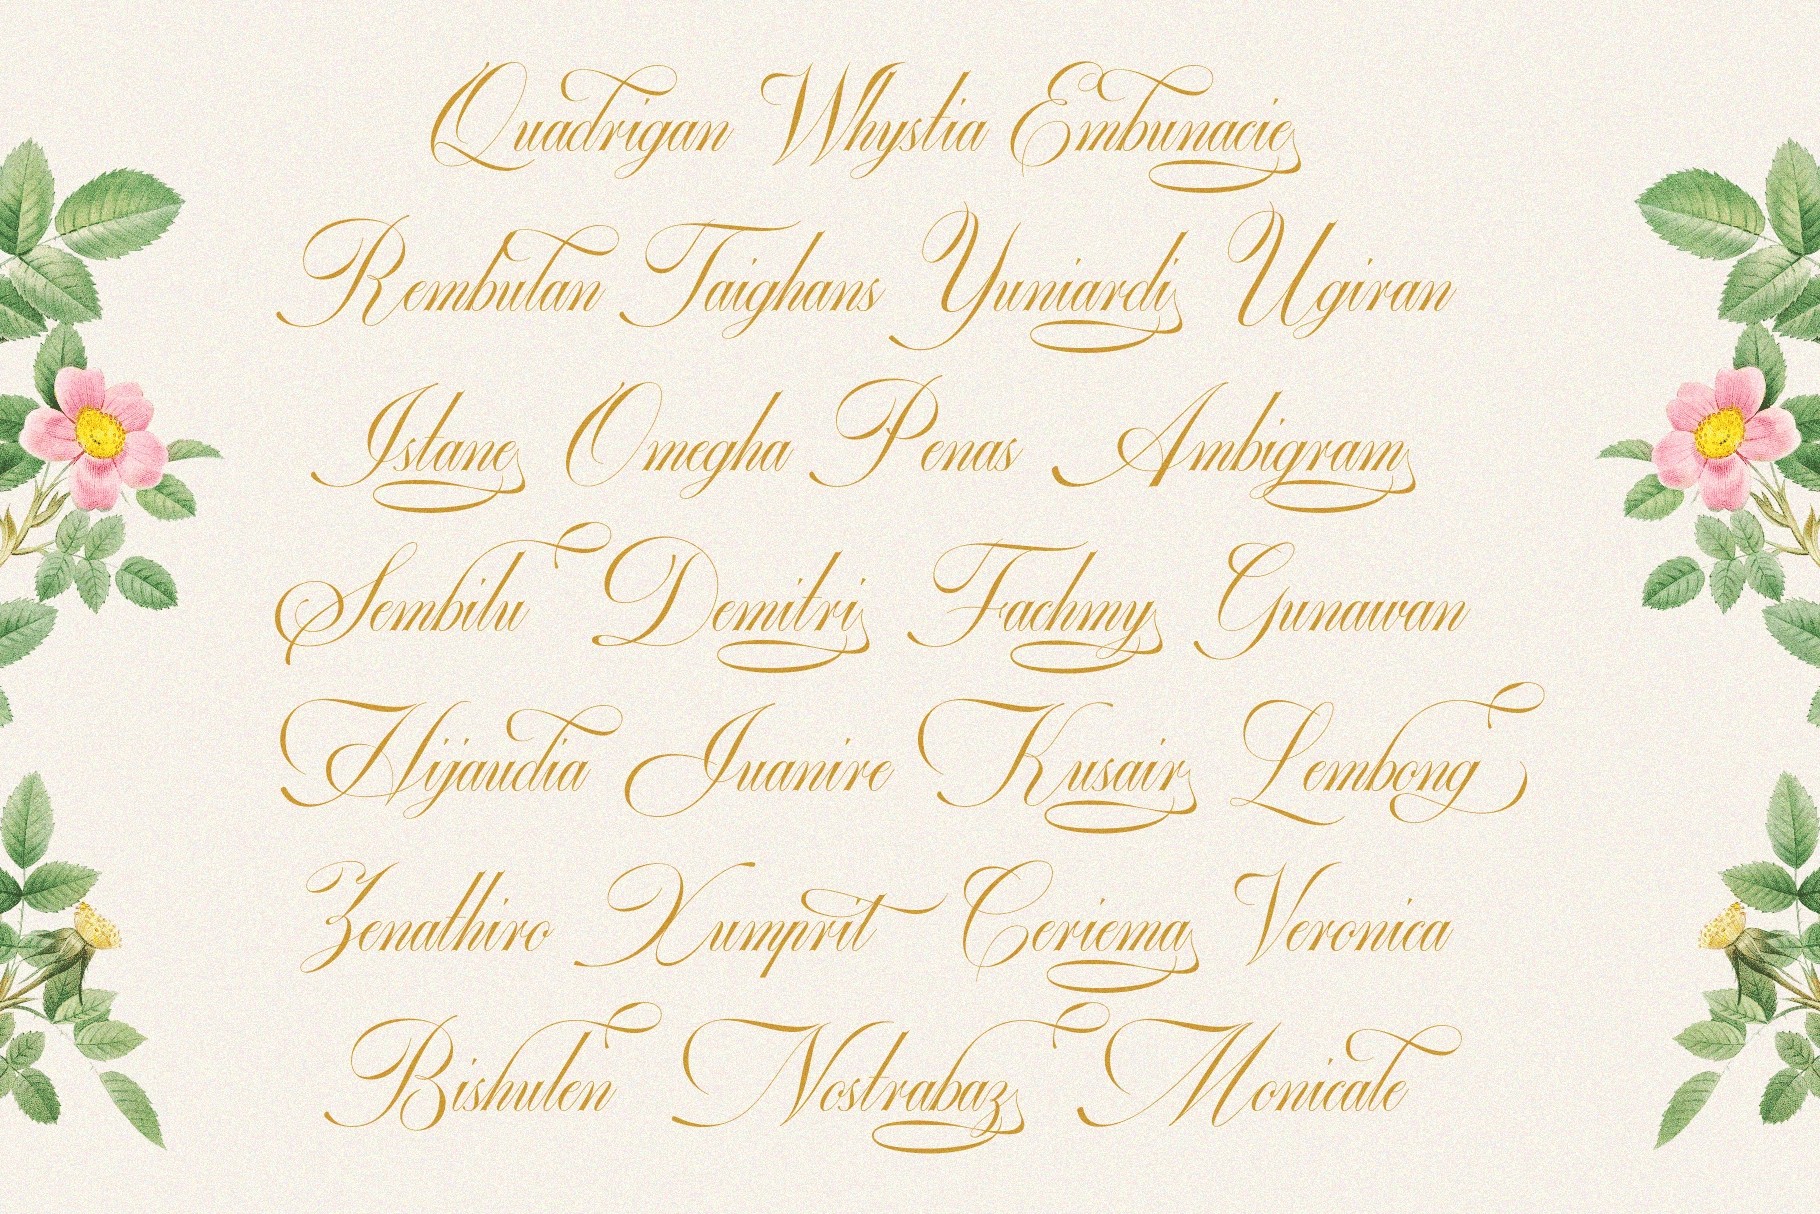 Quadrigan Whystia Embunacie
Rembulan Taighans Yuniardi Ugiran
Istane Omegha Penas Ambigram
Sembilu Demitri Fachmy Gunawan
Hijaudia Juanire Kusair Lembong
Zenathiro Xumprit Ceriema Veronica
Bishulen Nostrabaz Monicale